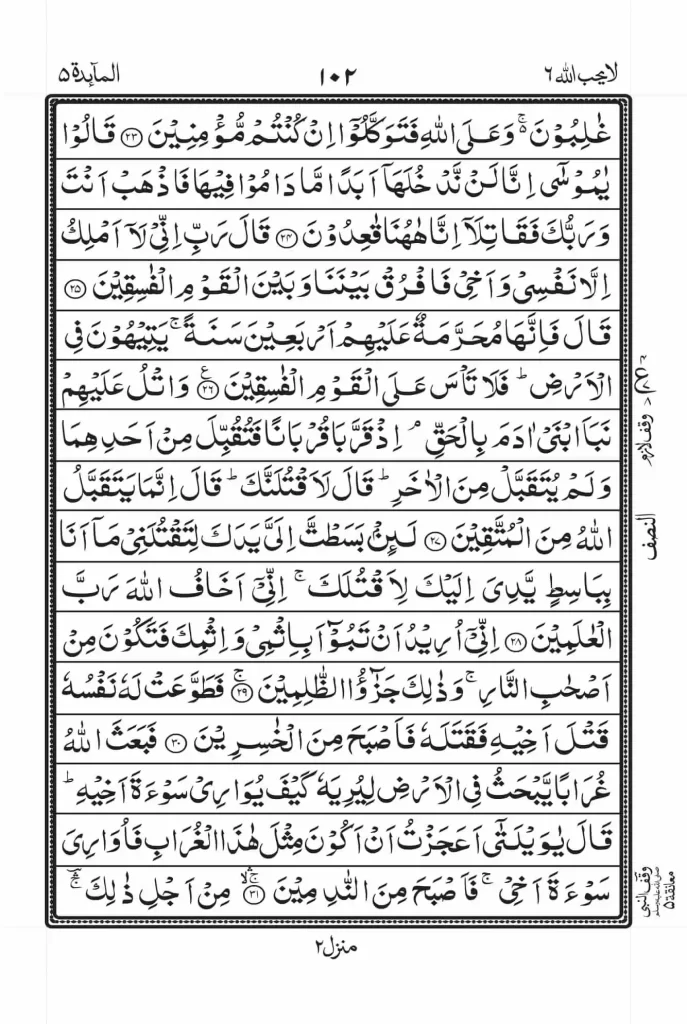 لا یحب اللہ ٦
١٠٢
المآىِٕدة ٥
غٰلِبُوْنَ ۬ۚ وَ عَلَى اللّٰهِ فَتَوَكَّلُوْۤا اِنْ كُنْتُمْ مُّؤْمِنِیْنَ ﴿۲۳﴾ قَالُوْا
یٰمُوْسٰۤى اِنَّا لَنْ نَّدْخُلَهَاۤ اَبَدًا مَّا دَامُوْا فِیْهَا فَاذْهَبْ اَنْتَ
وَ رَبُّكَ فَقَاتِلَاۤ اِنَّا هٰهُنَا قٰعِدُوْنَ ﴿۲۴﴾ قَالَ رَبِّ اِنِّیْ لَاۤ اَمْلِكُ
اِلَّا نَفْسِیْ وَ اَخِیْ فَافْرُقْ بَیْنَنَا وَ بَیْنَ الْقَوْمِ الْفٰسِقِیْنَ ﴿۲۵﴾
قَالَ فَاِنَّهَا مُحَرَّمَةٌ عَلَیْهِمْ اَرْبَعِیْنَ سَنَةً ۚ یَتِیْهُوْنَ فِی
الْاَرْضِ ؕ فَلَا تَاْسَ عَلَى الْقَوْمِ الْفٰسِقِیْنَ ﴿۲۶﴾ ع وَ اتْلُ عَلَیْهِمْ
نَبَاَ ابْنَیْ اٰدَمَ بِالْحَقِّ ۘ اِذْ قَرَّبَا قُرْبَانًا فَتُقُبِّلَ مِنْ اَحَدِهِمَا
وقف لازم
وَ لَمْ یُتَقَبَّلْ مِنَ الْاٰخَرِ ؕ قَالَ لَاَقْتُلَنَّكَ ؕ قَالَ اِنَّمَا یَتَقَبَّلُ
اللّٰهُ مِنَ الْمُتَّقِیْنَ ﴿۲۷﴾ لَىِٕنْۢ بَسَطْتَّ اِلَیَّ یَدَكَ لِتَقْتُلَنِیْ مَاۤ اَنَا
النصف
بِبَاسِطٍ یَّدِیَ اِلَیْكَ لِاَقْتُلَكَ ۚ اِنِّیْۤ اَخَافُ اللّٰهَ رَبَّ
الْعٰلَمِیْنَ ﴿۲۸﴾ اِنِّیْۤ اُرِیْدُ اَنْ تَبُوْٓاَ بِاِثْمِیْ وَ اِثْمِكَ فَتَكُوْنَ مِنْ
اَصْحٰبِ النَّارِ ۚ وَ ذٰلِكَ جَزٰٓؤُا الظّٰلِمِیْنَ ﴿۲۹﴾ۚ فَطَوَّعَتْ لَهٗ نَفْسُهٗ
قَتْلَ اَخِیْهِ فَقَتَلَهٗ فَاَصْبَحَ مِنَ الْخٰسِرِیْنَ ﴿۳۰﴾ فَبَعَثَ اللّٰهُ
غُرَابًا یَّبْحَثُ فِی الْاَرْضِ لِیُرِیَهٗ كَیْفَ یُوَارِیْ سَوْءَةَ اَخِیْهِ ؕ
قَالَ یٰوَیْلَتٰۤى اَعَجَزْتُ اَنْ اَكُوْنَ مِثْلَ هٰذَا الْغُرَابِ فَاُوَارِیَ
سَوْءَةَ اَخِیْ ۚ فَاَصْبَحَ مِنَ النّٰدِمِیْنَ ﴿۳۱﴾ مِنْ اَجْلِ ذٰلِكَ
وقف النبی
صلى الله عليه وسلم
معانقة ٥
منزل ٢